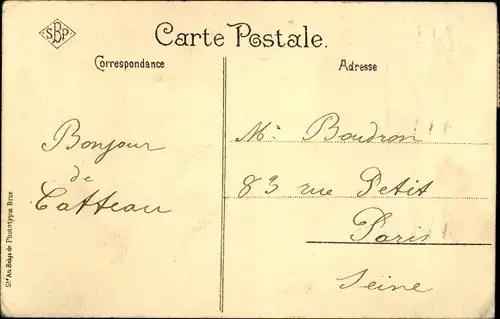 SBP
Carte Postale.
Correspondance
Adresse
Bonjour
de
Catteau
Mr. Boudron
83 rue Petit
Paris
Seine
Sté An. Belge de Phototypie Brux.